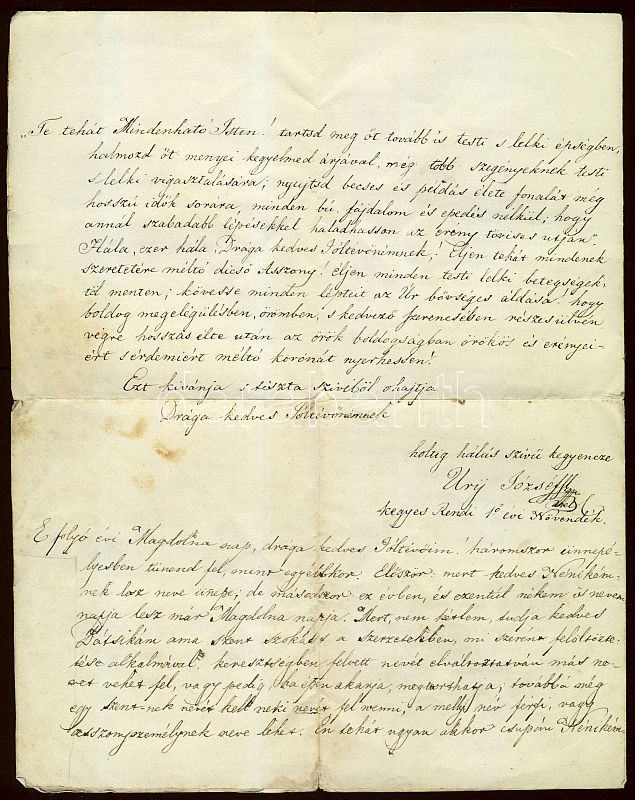 „Te tehát Mindenható Isten! tartsd meg őt tovább is testi s lelki épségben,
halmozd őt menyei kegyelmed árjával, még több szegényeknek testi
s lelki vigasztalására; nyujtsd becses és példás élete fonalát meg
hosszú idők sorára, minden bú, fájdalom és epedés nélkül, hogy
annál szabadabb lépésekkel haladhasson az erény tövises utján".
Hála, ezer hála, Drága kedves Jóltévőnimnek! Éljen tehát mindenek
szeretetére méltó dicső Asszony! éljen minden testi lelki betegségek-
től menten; kövesse minden lépteit az Úr bőséges áldása! hogy
boldog megelégülésben, örömben, s kedvező szerencsében részesülvén
végre hosszas élte után az örök boldogságban örökös és erényei-
ért s érdemiért méltó koronát nyerhessen!
Ezt kivánja s tiszta szivéből ohajtja
Drága kedves Jóltévőnimnek
holtig hálás szivü kegyencze
Urij József
kegyes Rendi 1ő évi Növendék.
E folyó évi Magdolna nap, drága kedves Jóltévőim! háromszor ünnepé-
lyesben tünend fel, mint egyébkor. Először: mert kedves Nénikém-
nek lesz neve ünepe; de másodszor ez évben, és ezentúl nékem is nevem
napja lesz már Magdolna napja. Mert, nem kétlem, tudja kedves
Bátsikám ama szent szokást a szerzetekben, mi szerént felöltözte-
tése alkalmával, keresztségben felvett nevét elváltoztatván más ne-
vet vehet fel, vagy pedig, ha épen akarja, megtarthatja; továbbá még
egy szent-nek nevét kell neki nevet fel venni, a melly név férfi, vagy
asszonyszemélynek neve lehet. Én tehát ugyan akkor csupán Nénikém